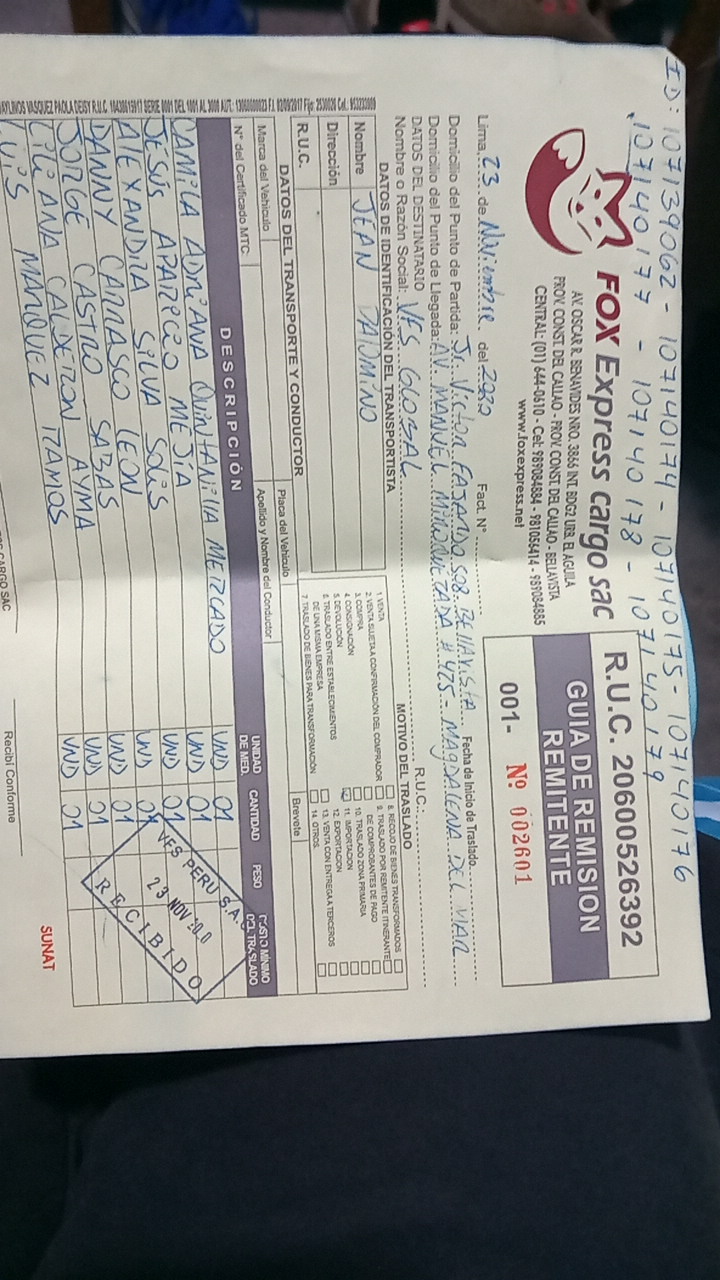 ID: 107139062 - 107140174 - 107140175 - 107140176
107140177 - 107140178 - 107140179
FOX Express cargo sac
AV. OSCAR R. BENAVIDES NRO. 3866 INT. BDG2 URB. EL AGUILA
PROV. CONST. DEL CALLAO - PROV. CONST. DEL CALLAO - BELLAVISTA
CENTRAL: (01) 644-0610 - Cel: 989084884 - 981056414 - 989084885
www.foxexpress.net
R.U.C. 20600526392
GUIA DE REMISION
REMITENTE
001- Nº 002601
Lima 23 de Noviembre del 2020 Fact. N° Fecha de Inicio de Traslado
Domicilio del Punto de Partida: Jr. Victor FAJARDO 508. BELLAVISTA
Domicilio del Punto de Llegada: AV. MANUEL MIROQUEZADA # 425 - MAGDALENA DEL MAR
DATOS DEL DESTINATARIO
Nombre o Razón Social: VFS GLOBAL R.U.C.:
DATOS DE IDENTIFICACIÓN DEL TRANSPORTISTA
Nombre JEAN PALOMINO
Dirección
R.U.C.
MOTIVO DEL TRASLADO
1. VENTA
2. VENTA SUJETA A CONFIRMACIÓN DEL COMPRADOR
3. COMPRA
4. CONSIGNACIÓN
5. DEVOLUCIÓN
6. TRASLADO ENTRE ESTABLECIMIENTOS
DE UNA MISMA EMPRESA
7. TRASLADO DE BIENES PARA TRANSFORMACIÓN
8. RECOJO DE BIENES TRANSFORMADOS
9. TRASLADO POR REMITENTE ITINERANTE
DE COMPROBANTES DE PAGO
10. TRASLADO ZONA PRIMARIA
11. IMPORTACIÓN
12. EXPORTACIÓN
13. VENTA CON ENTREGA A TERCEROS
14. OTROS
DATOS DEL TRANSPORTE Y CONDUCTOR
Marca del Vehículo Placa del Vehículo Brevete
N° del Certificado MTC Apellido y Nombre del Conductor
DESCRIPCIÓN UNIDAD DE MED. CANTIDAD PESO COSTO MÍNIMO DEL TRASLADO
CAMILA ADRIANA QUINTANILLA MERCADO UND 01
JESÚS APARICIO MEJÍA UND 01
ALEXANDRA SILVA SOLIS UND 01
DANNY CARRASCO LEON UND 01
JORGE CASTRO SABAS UND 01
LILIANA CALDERON AYMA UND 01
LUIS MARQUEZ RAMOS UND 01
VFS PERU S.A.
23 NOV 2020
RECIBIDO
CARGO SAC
Recibí Conforme
SUNAT
VASQUEZ PAOLA DEISY R.U.C. 10430615917 SERIE 0001 DEL 1001 AL 3000 AUT.: 13080000023 F.I. 02/09/2017 Fijo: 2530026 Cel.: 953233000